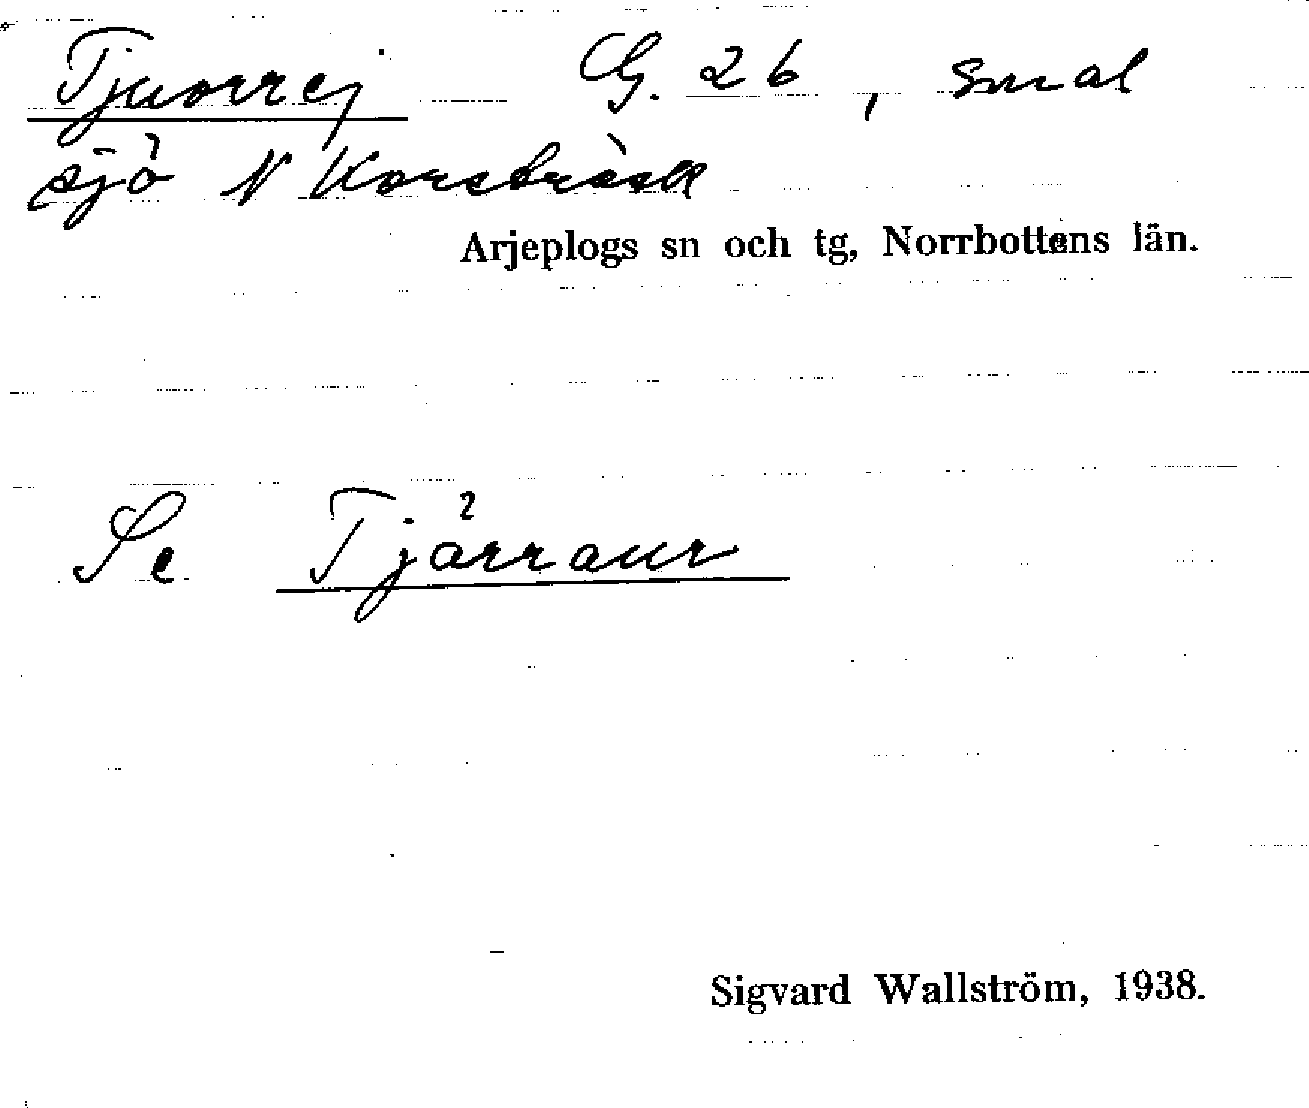 Tjuorrej G. 26, smal
sjö N Korsträsk
Arjeplogs sn och tg, Norrbottens län.
Se Tjårraur
Sigvard Wallström, 1938.